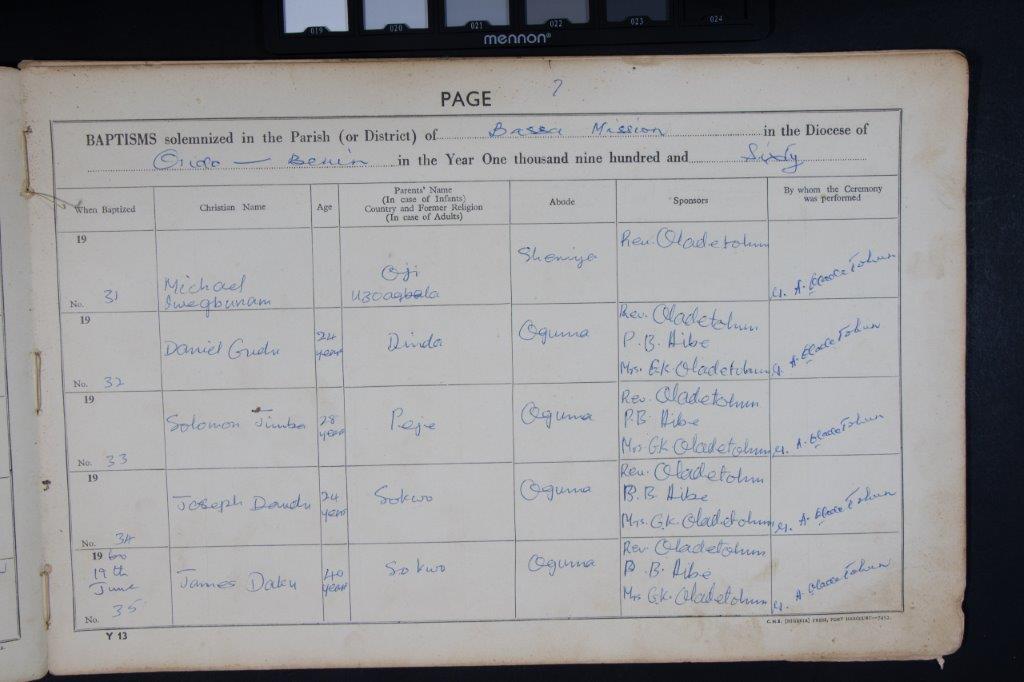 019 020 021 022 023 024
mennon®
PAGE 7
BAPTISMS solemnized in the Parish (or District) of Bassa Mission in the Diocese of
Ondo — Benin in the Year One thousand nine hundred and Sixty
When Baptized
Christian Name
Age
Parents' Name
(In case of Infants)
Country and Former Religion
(In case of Adults)
Abode
Sponsors
By whom the Ceremony
was performed
19
No. 31
Michael
Iwegbunam
Oji
Uzoagbala
Sheniya
Rev. Oladetohun
A. Oladetohun
19
No. 32
Daniel Gudu
24
year
Dinda
Oguma
Rev. Oladetohun
P. B. Aibe
Mrs. G.K. Oladetohun
A. Oladetohun
19
No. 33
Solomon Jimba
28
year
Peje
Oguma
Rev. Oladetohun
P.B. Aibe
Mrs G.K. Oladetohun
A. Oladetohun
19
No. 34
Joseph Dandu
24
year
Sokwo
Oguma
Rev. Oladetohun
P. B. Aibe
Mrs. G.K. Oladetohun
A. Oladetohun
19 60
19th
June
No. 35
James Daku
40
year
Sokwo
Oguma
Rev. Oladetohun
P. B. Aibe
Mrs G.K. Oladetohun
A. Oladetohun
Y 13
C.M.S. (NIGERIA) PRESS, PORT HARCOURT—7452.